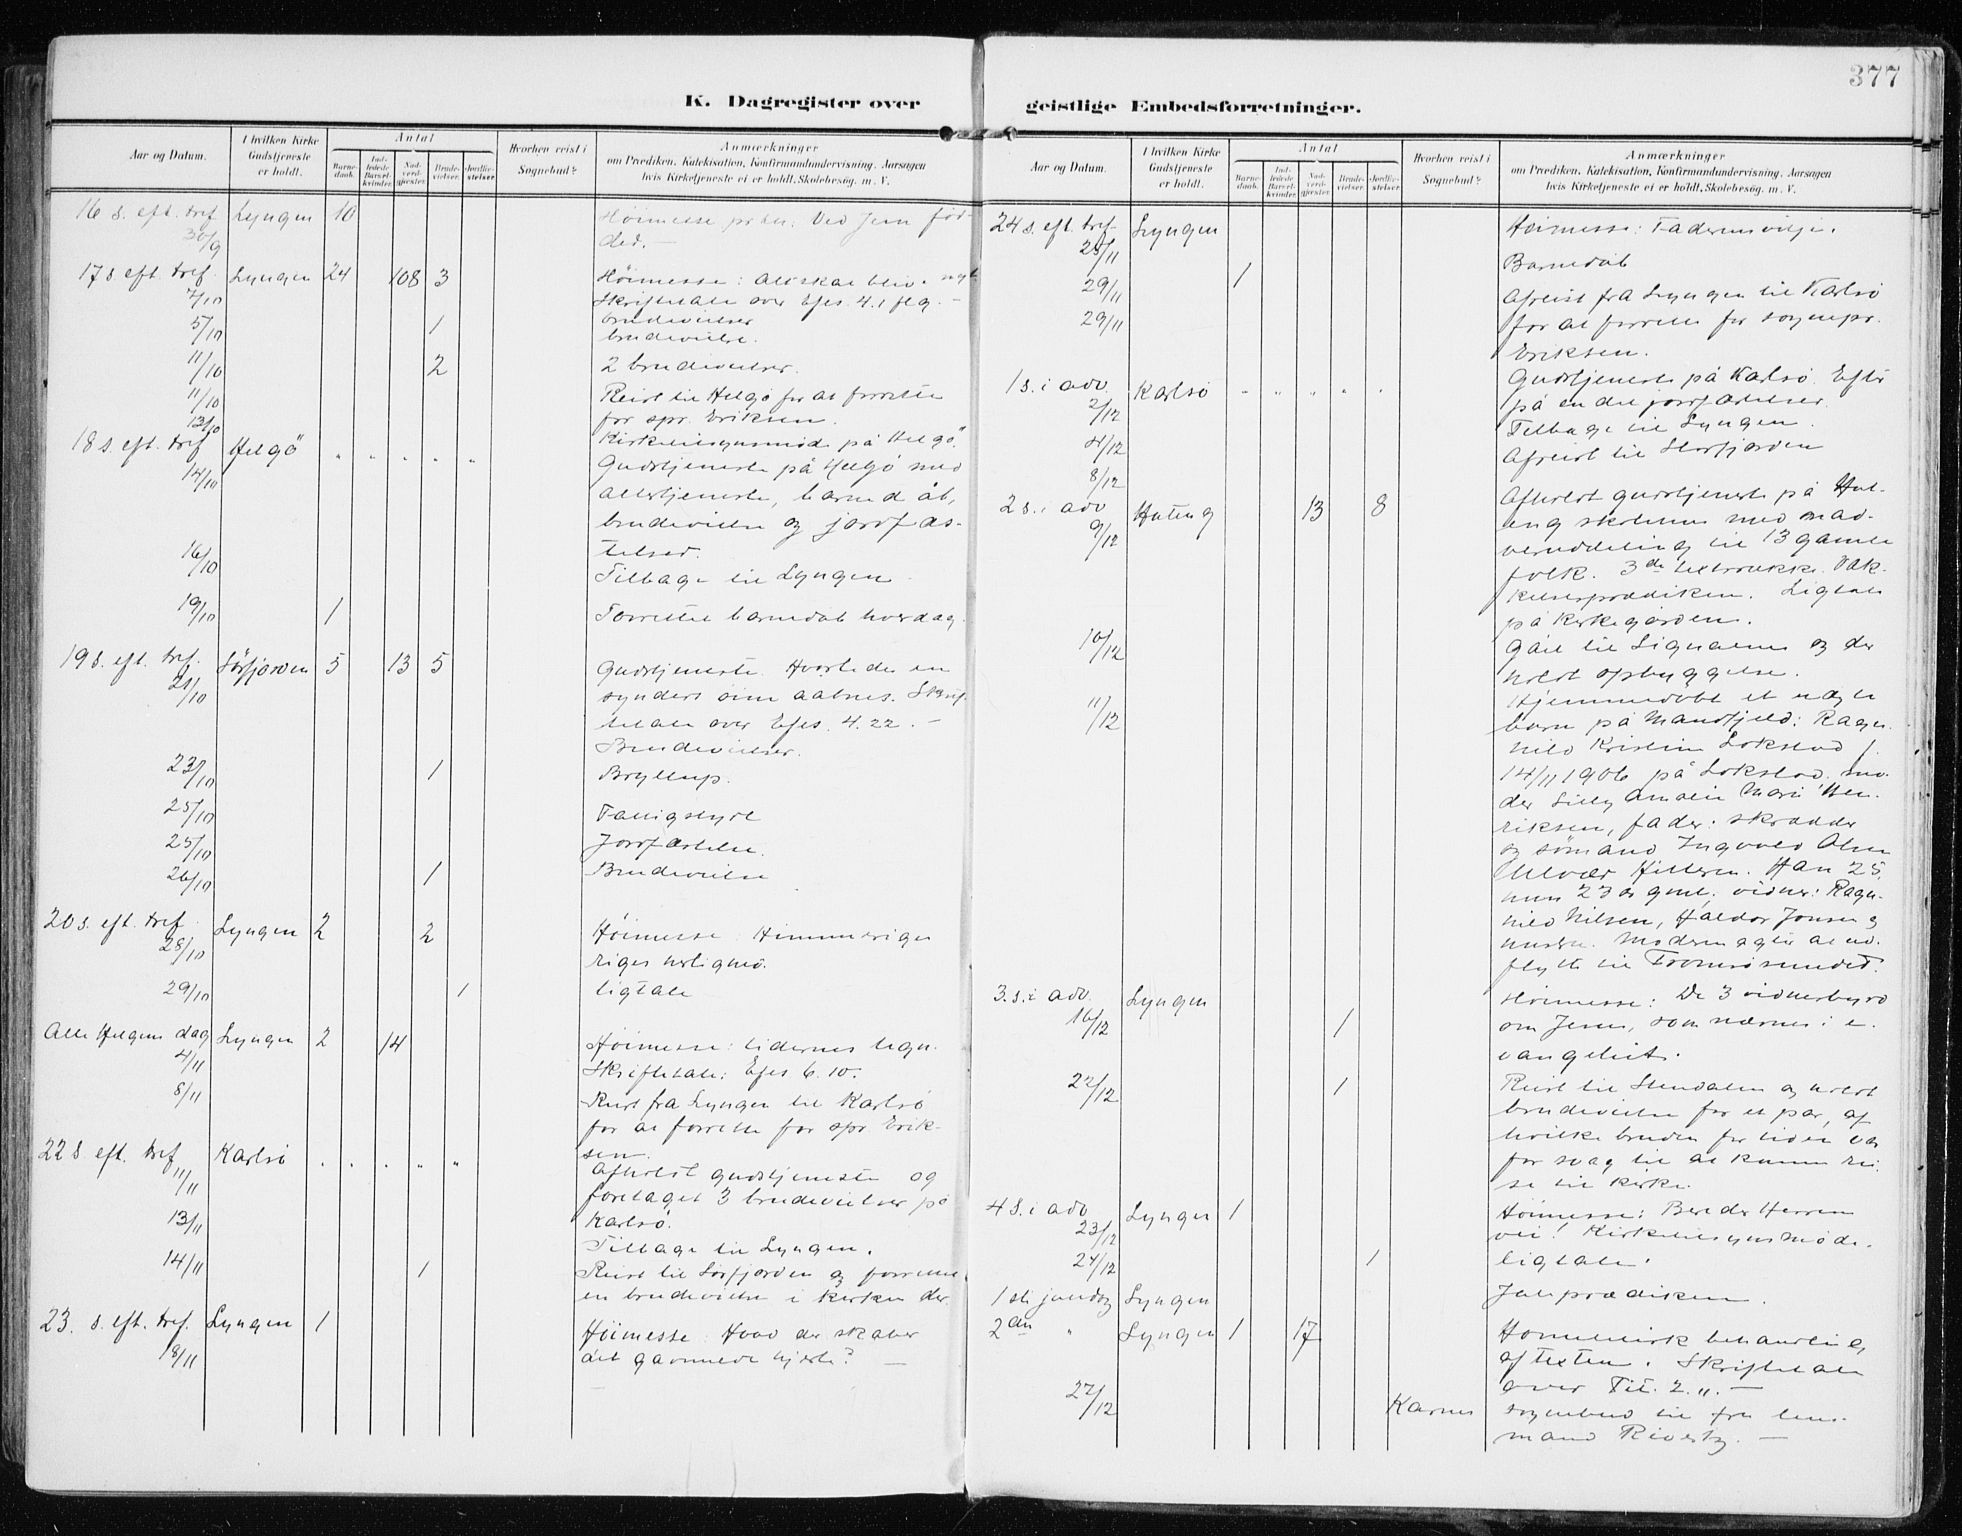 377
K. Dagregister over geistlige Embedsforretninger.
Aar og Datum. I hvilken Kirke Gudstjeneste er holdt. Antal Barne-daab. Ind-ledede Barsel-kvinder. Nad-verd-gjester. Brude-vielser. Jordfæ-stelser. Hvorhen reist i Sognebud? Anmærkninger
om Prædiken, Katekisation, Konfirmandundervisning, Aarsagen
hvis Kirketjeneste ei er holdt, Skolebesøg, m. V.
16 s. eft. tref Lyngen 10 Høimesse Ved Jesu fød-
30/9 ded. —
17 s eft. tref. Lyngen 24 108 3 Høimesse:
7/10 Skriftetale over Efes. 4.1 flg. —
brudevielser
5/10 1 brudevielse.
11/10 2 2 brudevielser.
11/10 Reist til Helgø for at forrette
for spr. Eriksen.
13/10 Kirketilsynsmøde på Helgø.
18 s. eft. tref Helgö " " " " "
14/10 Gudstjeneste på Helgø med
altertjeneste, barnedåb,
brudevielse og jordfæs-
telser.
16/10 Tilbage til Lyngen
19/10 1 Forrettet barnedåb hverdag.
19 s. eft. tref. Sørfjorden 5 13 5 Gudstjeneste. Hvorledes en
21/10 synders øine aabnes. Skrif-
tetale over Efes. 4.22. —
Brudevielser.
23/10 1 Bryllup.
25/10 Fattigstyre
25/10 Jordfæstelse.
26/10 1 Brudevielse
20 s. eft. tref Lyngen 2 2 Høimesse Himmeriges
28/10 riges herlighed.
29/10 1 ligtale
Alle Helgens dag Lyngen 2 14 Høimesse: tidernes tegn.
4/11 Skriftetale: Efes 6.10.
8/11 Reist fra Lyngen til Karlsø
for at forrette for spr. Erik-
sen.
22 s. eft. tref Karlsö " " " " "
11/11 Afholdt gudstjeneste og
foretaget 3 brudevielser på
Karlsø.
13/11 Tilbage til Lyngen.
14/11 1 Reist til Sørfjorden og forrettet
en brudevielse i kirken der.
23. s. eft. tref. Lyngen 1 Høimesse: Hvad der skaber
18/11 det gavmilde hjerte? —
Aar og Datum. I hvilken Kirke Gudstjeneste er holdt. Antal Barne-daab. Ind-ledede Barsel-kvinder. Nad-verd-gjester. Brude-vielser. Jordfæ-stelser. Hvorhen reist i Sognebud? Anmærkninger
om Prædiken, Katekisation, Konfirmandundervisning, Aarsagen
hvis Kirketjeneste ei er holdt, Skolebesøg, m. V.
24 s. eft. tref. Lyngen Høimesse: Faderens vilje.
25/11
29/11 1 Barnedåb
29/11 Afreist fra Lyngen til Karlsø
for at forrette for sognepr.
Eriksen.
1 s. i adv Karlsö " " " " "
2/12 Gudstjeneste på Karlsø. Efter
på en del jordfæstelser.
4/12 Tilbage til Lyngen.
8/12 Afreist til Storfjorden
2 s. i adv Hateng 13 8 Afholdt gudstjeneste på Hat-
9/12 eng skolehus med nad-
verutdeling til 13 gamle
folk. 3de textrække. Væk-
kelsesprædiken. Ligtale
på kirkegården.
10/12 Gået til Signalnes og der
holdt opbyggelse.
11/12 Hjemmedøbt et uægte
barn på Mandfjeld: Ragn-
hild Kristine Lokstad f.
14/11 1906 på Lokstad. mo-
der Lilly Amalie Marie Hen-
riksen, fader: skrædder
og sømand Ingvald Olsen
Ulvær Hitteren. Han 25.
hun 23 år gml. vidner: Ragn-
hild Nilsen, Haldor Jensen og
hustru. Moderen agter at ud-
flytte til Tromsøsundet.
3. s. i adv. Lyngen Høimesse: De 3 vidnesbyrd
16/12 1 om Jesus, som nævnes i e-
vangeliet.
22/12 1 Reist til Stendalen og holdt
brudevielse for et par, af
hvilke bruden for tiden var
for svag til at kunne rei-
se til kirke.
4 s. i adv Lyngen 1 Høimesse: Bered Herrens
23/12 vei! Kirketilsynsmøde.
24/12 1 ligtale.
1ste juledag Lyngen Juleprædiken.
2den " Lyngen 1 17 behandling
af texten. Skriftetale
over Tit. 2.11. —
27/12 Karnes sognebud til fru lens-
mand Rivertz. —